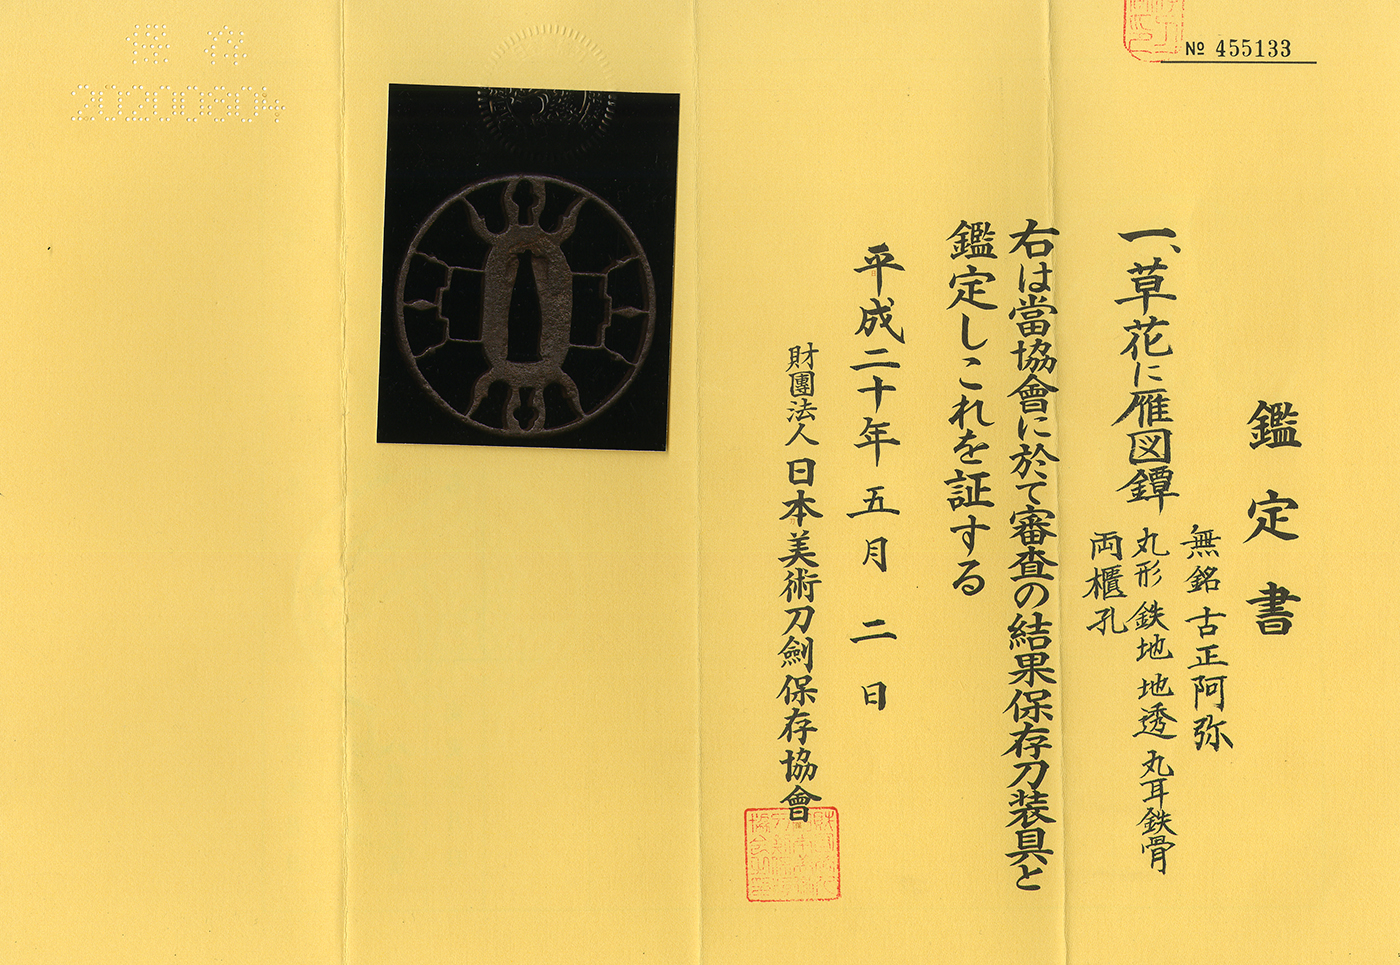 № 455133
鑑定書
一、草花に雁図鐔
無銘 古正阿弥
丸形 鉄地 地透 丸耳鉄骨
両櫃孔
右は當協會に於て審査の結果保存刀装具と
鑑定しこれを証する
平成二十年 五月 二日
財團法人 日本美術刀劍保存協會
保存
20200804